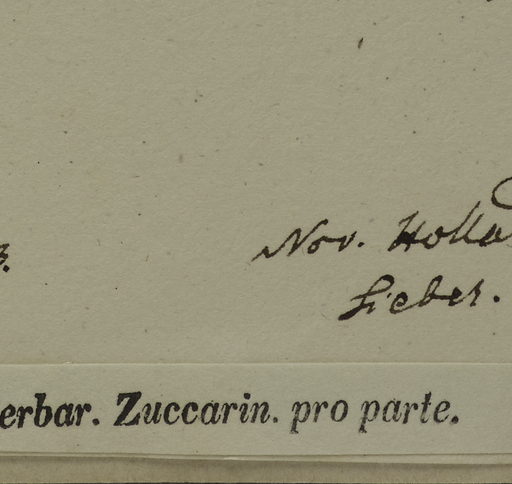 Nov. Holla
Sieber.
erbar. Zuccarin. pro parte.